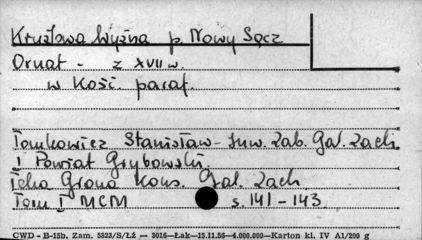 Krużlowa Wyżna p. Nowy Sącz
Ornat - z XVII w.
w Kość. paraf.
Tomkowicz Stanisław - Inw. Zab. Gal. Zach.
I Powiat Grybowski.
Teka Grona Kons. Gal. Zach
Tom I MCM s. 141 - 143.
CWD - B-15b. Zam. 5323/S/Łź — 3016—Łak—15.11.56—4.000.000—Karton kl. IV A1/200 g